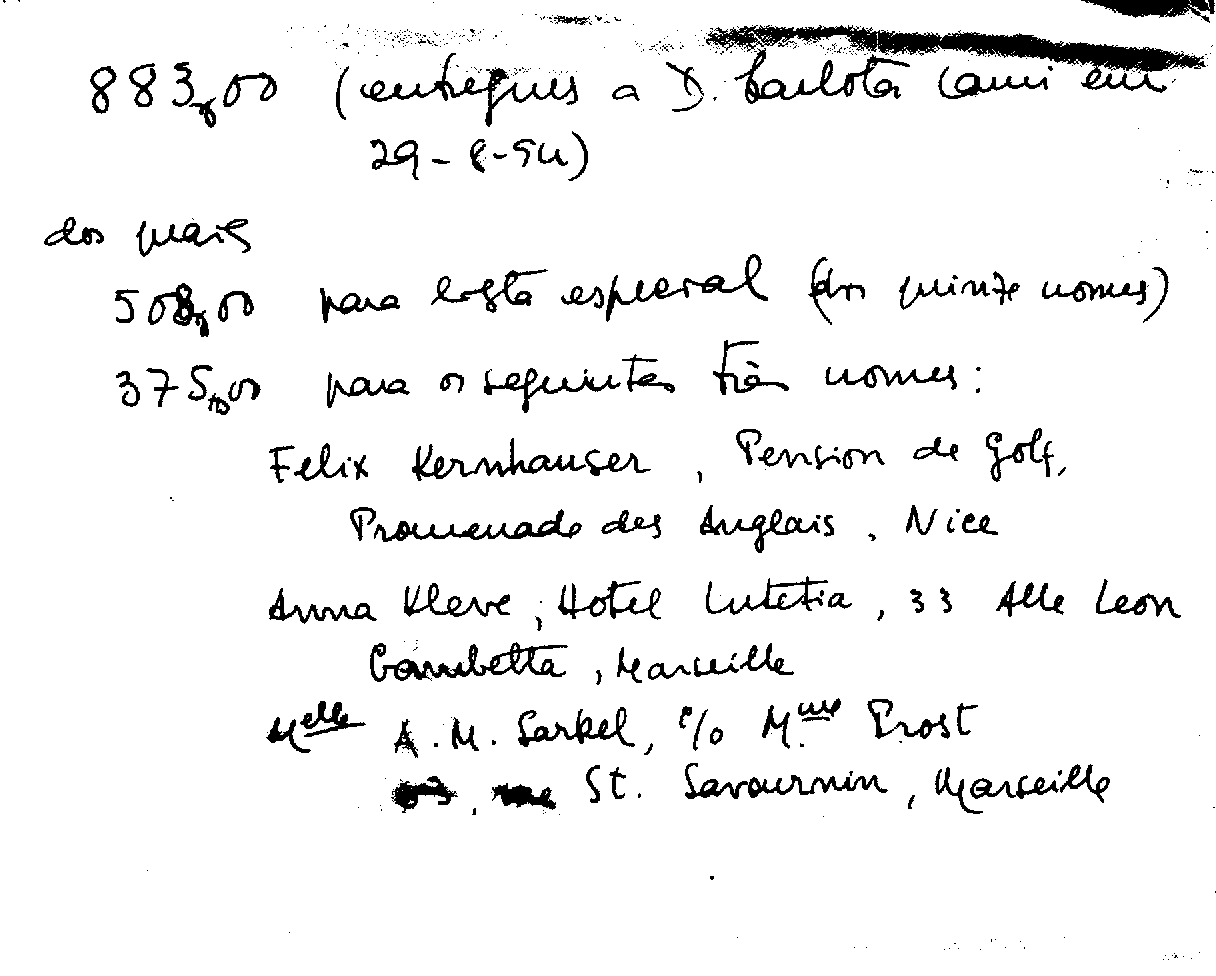 883$00 (entregues a D. Carlota Cami em
29-8-54)
dos quais
508$00 para lista especial (dos quinze nomes)
375$00 para os seguintes três nomes:
Felix Kernhauser, Pension de Golf,
Promenade des Anglais, Nice
Anna Kleve, Hotel Lutetia, 33 Alle Leon
Gambetta, Marseille
Melle A. M. Sarkel, c/o Mme Prost
63, rue St. Savournin, Marseille